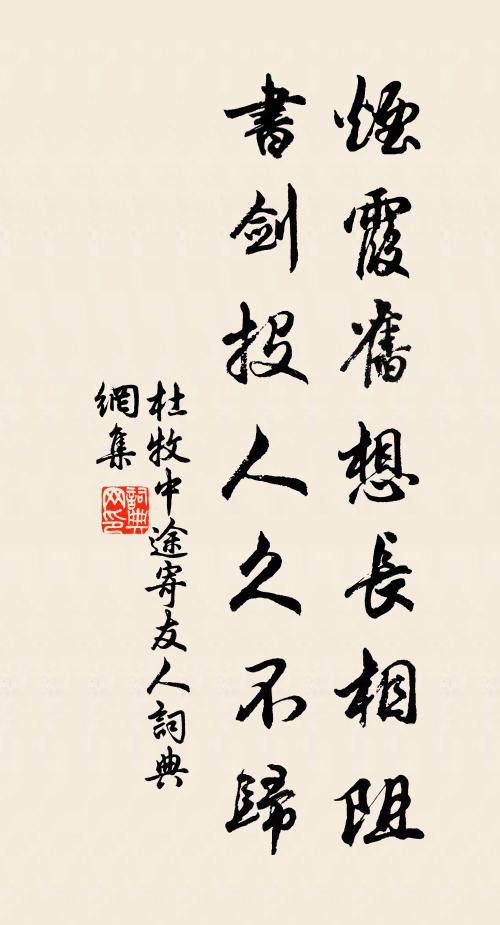 煙霞舊想長相阻
書劍投人久不歸
杜牧中途寄友人詞典
網集
詞典
网印